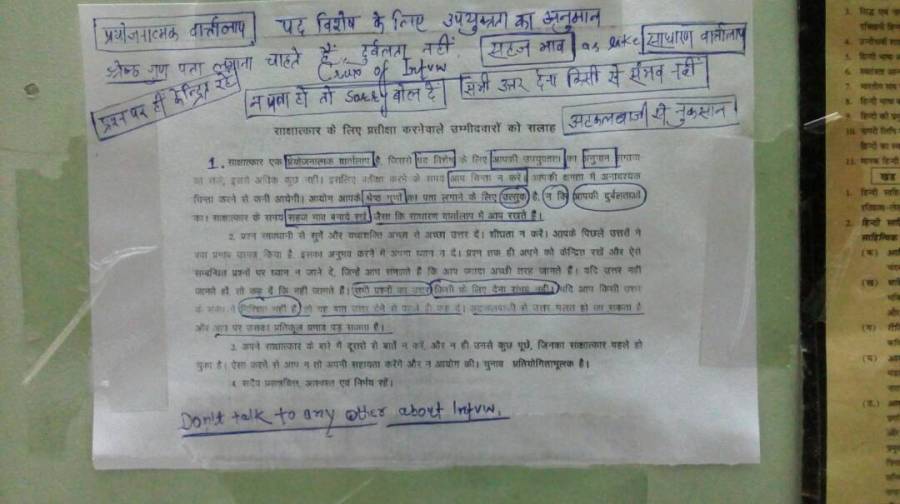 प्रयोजनात्मक वार्त्तालाप पद विशेष के लिए उपयुक्तता का अनुमान
श्रेष्ठ गुण पता लगाना चाहते हैं, दुर्बलता नहीं. सहज भाव as like साधारण वार्त्तालाप
of Intvw
प्रश्न पर ही केन्द्रित रहें न पता हो तो Sorry बोल दें सभी उत्तर देना किसी से संभव नहीं
अटकलबाजी से नुकसान
साक्षात्कार के लिए प्रतीक्षा करनेवाले उम्मीदवारों को सलाह
1. साक्षात्कार एक प्रयोजनात्मक वार्त्तालाप है, जिससे पद विशेष के लिए आपकी उपयुक्तता का अनुमान लगाया
जा सके, इससे अधिक कुछ नहीं। इसलिए प्रतीक्षा करने के समय आप चिन्ता न करें। आपकी क्षमता में अनावश्यक
चिन्ता करने से कमी आयेगी। आयोग आपके श्रेष्ठ गुणों का पता लगाने के लिए उत्सुक है, न कि आपकी दुर्बलताओं
का। साक्षात्कार के समय सहज भाव बनाये रखें जैसा कि साधारण वार्त्तालाप में आप रखते हैं।
2. प्रश्न सावधानी से सुनें और यथाशक्ति अच्छा से अच्छा उत्तर दें। शीघ्रता न करें। आपके पिछले उत्तरों ने
क्या प्रभाव उत्पन्न किया है, इसका अनुभव करने में अपना ध्यान न दें। प्रश्न तक ही अपने को केन्द्रित रखें और ऐसे
सम्बन्धित प्रश्नों पर ध्यान न जाने दें, जिन्हें आप समझते हैं कि आप ज्यादा अच्छी तरह जानते हैं। यदि उत्तर नहीं
जानते हों, तो कह दें कि नहीं जानते हैं। सभी प्रश्नों का उत्तर किसी के लिए देना संभव नहीं। यदि आप किसी उत्तर
के संबंध में निश्चित नहीं हैं, तो यह बात उत्तर देने से पहले ही कह दें। अटकलबाजी से उत्तर गलत हो जा सकता है
और आप पर उसका प्रतिकूल प्रभाव पड़ सकता है।
3. अपने साक्षात्कार के बारे में दूसरों से बातें न करें, और न ही उनसे कुछ पूछें, जिनका साक्षात्कार पहले हो
चुका है। ऐसा करने से आप न तो अपनी सहायता करेंगे और न आयोग की। चुनाव प्रतियोगितामूलक है।
4. सदैव प्रसन्नचित्त, आश्वस्त एवं निर्भय रहें।
Don't talk to any other about Intvw.